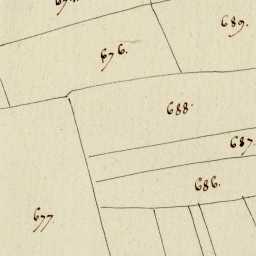 689.
676.
688.
687.
686.
677.